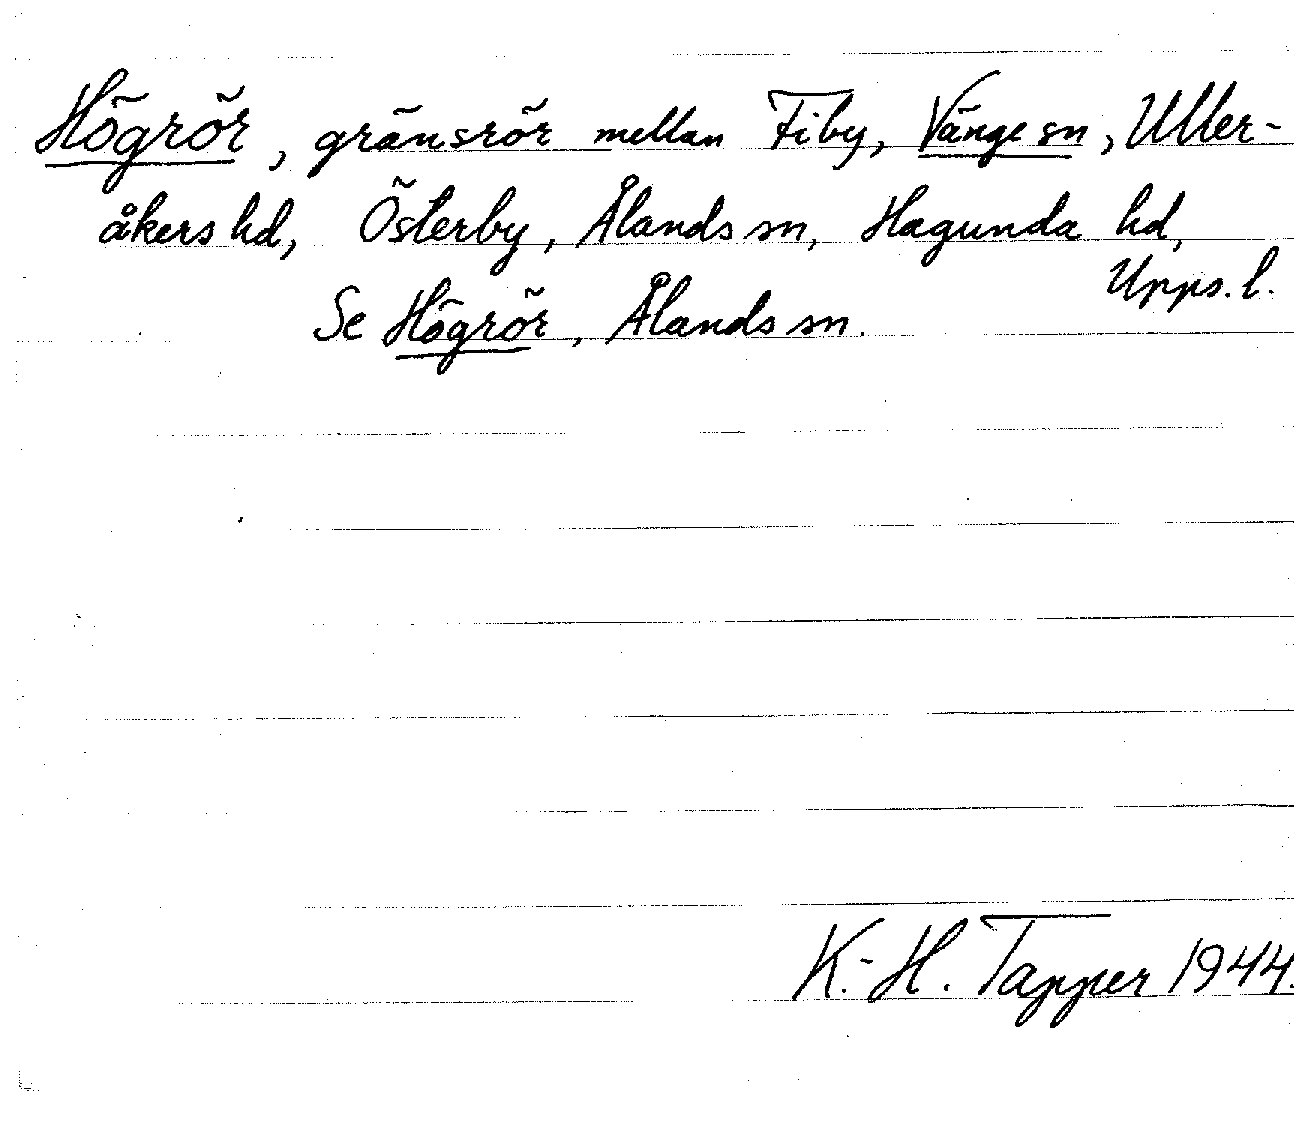 Högrör, gränsrör mellan Fiby, Vänge sn, Uller-
åkers hd, Österby, Ålands sn, Hagunda hd,
Upps. l.
Se Högrör, Ålands sn.
K.-H. Tapper 1944.